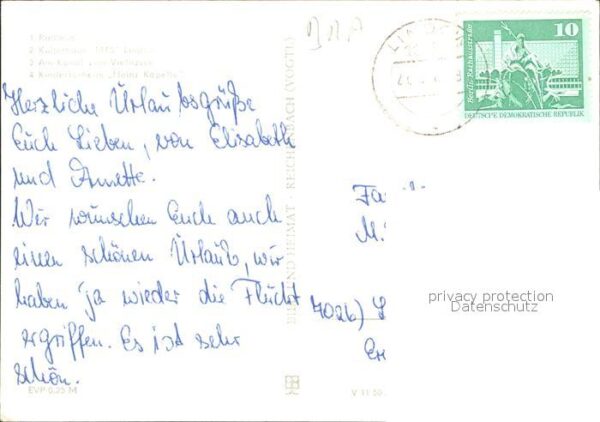 1 Rathaus
2 Kulturhaus
3 Am Kanal zum Vielitzsee
4 Kinderferienheim "Heinz Kapelle"
Herzliche Urlaubsgrüße
Euch Lieben, von Elisabeth
und Annette.
Wir wünschen Euch auch
einen schönen Urlaub, wir
haben ja wieder die Flucht
ergriffen. Es ist sehr
schön.
EVP 0,25 M
BILD UND HEIMAT · REICHENBACH (VOGTL)
V 11 50
10
Berlin, Rathausstraße
DEUTSCHE DEMOKRATISCHE REPUBLIK
Fa
M
7026) L
privacy protection
Datenschutz